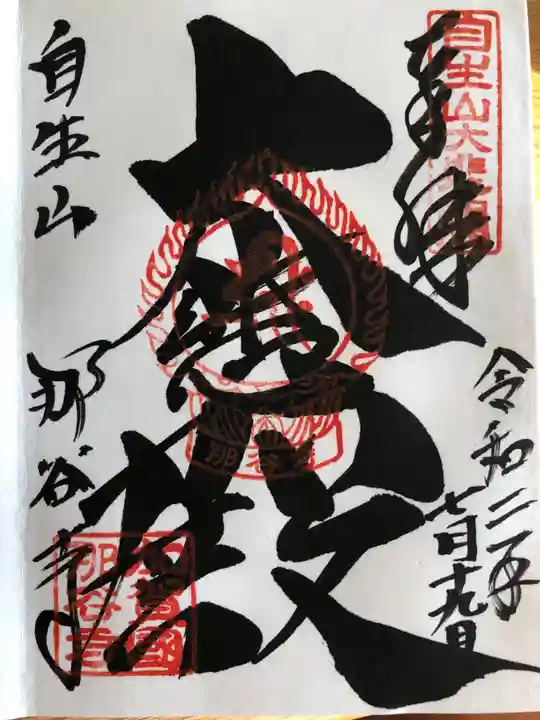 奉拝
自生山大悲
令和二年
七月十九日
大
殿
那谷寺
自生山 那谷寺
加賀國
那谷寺